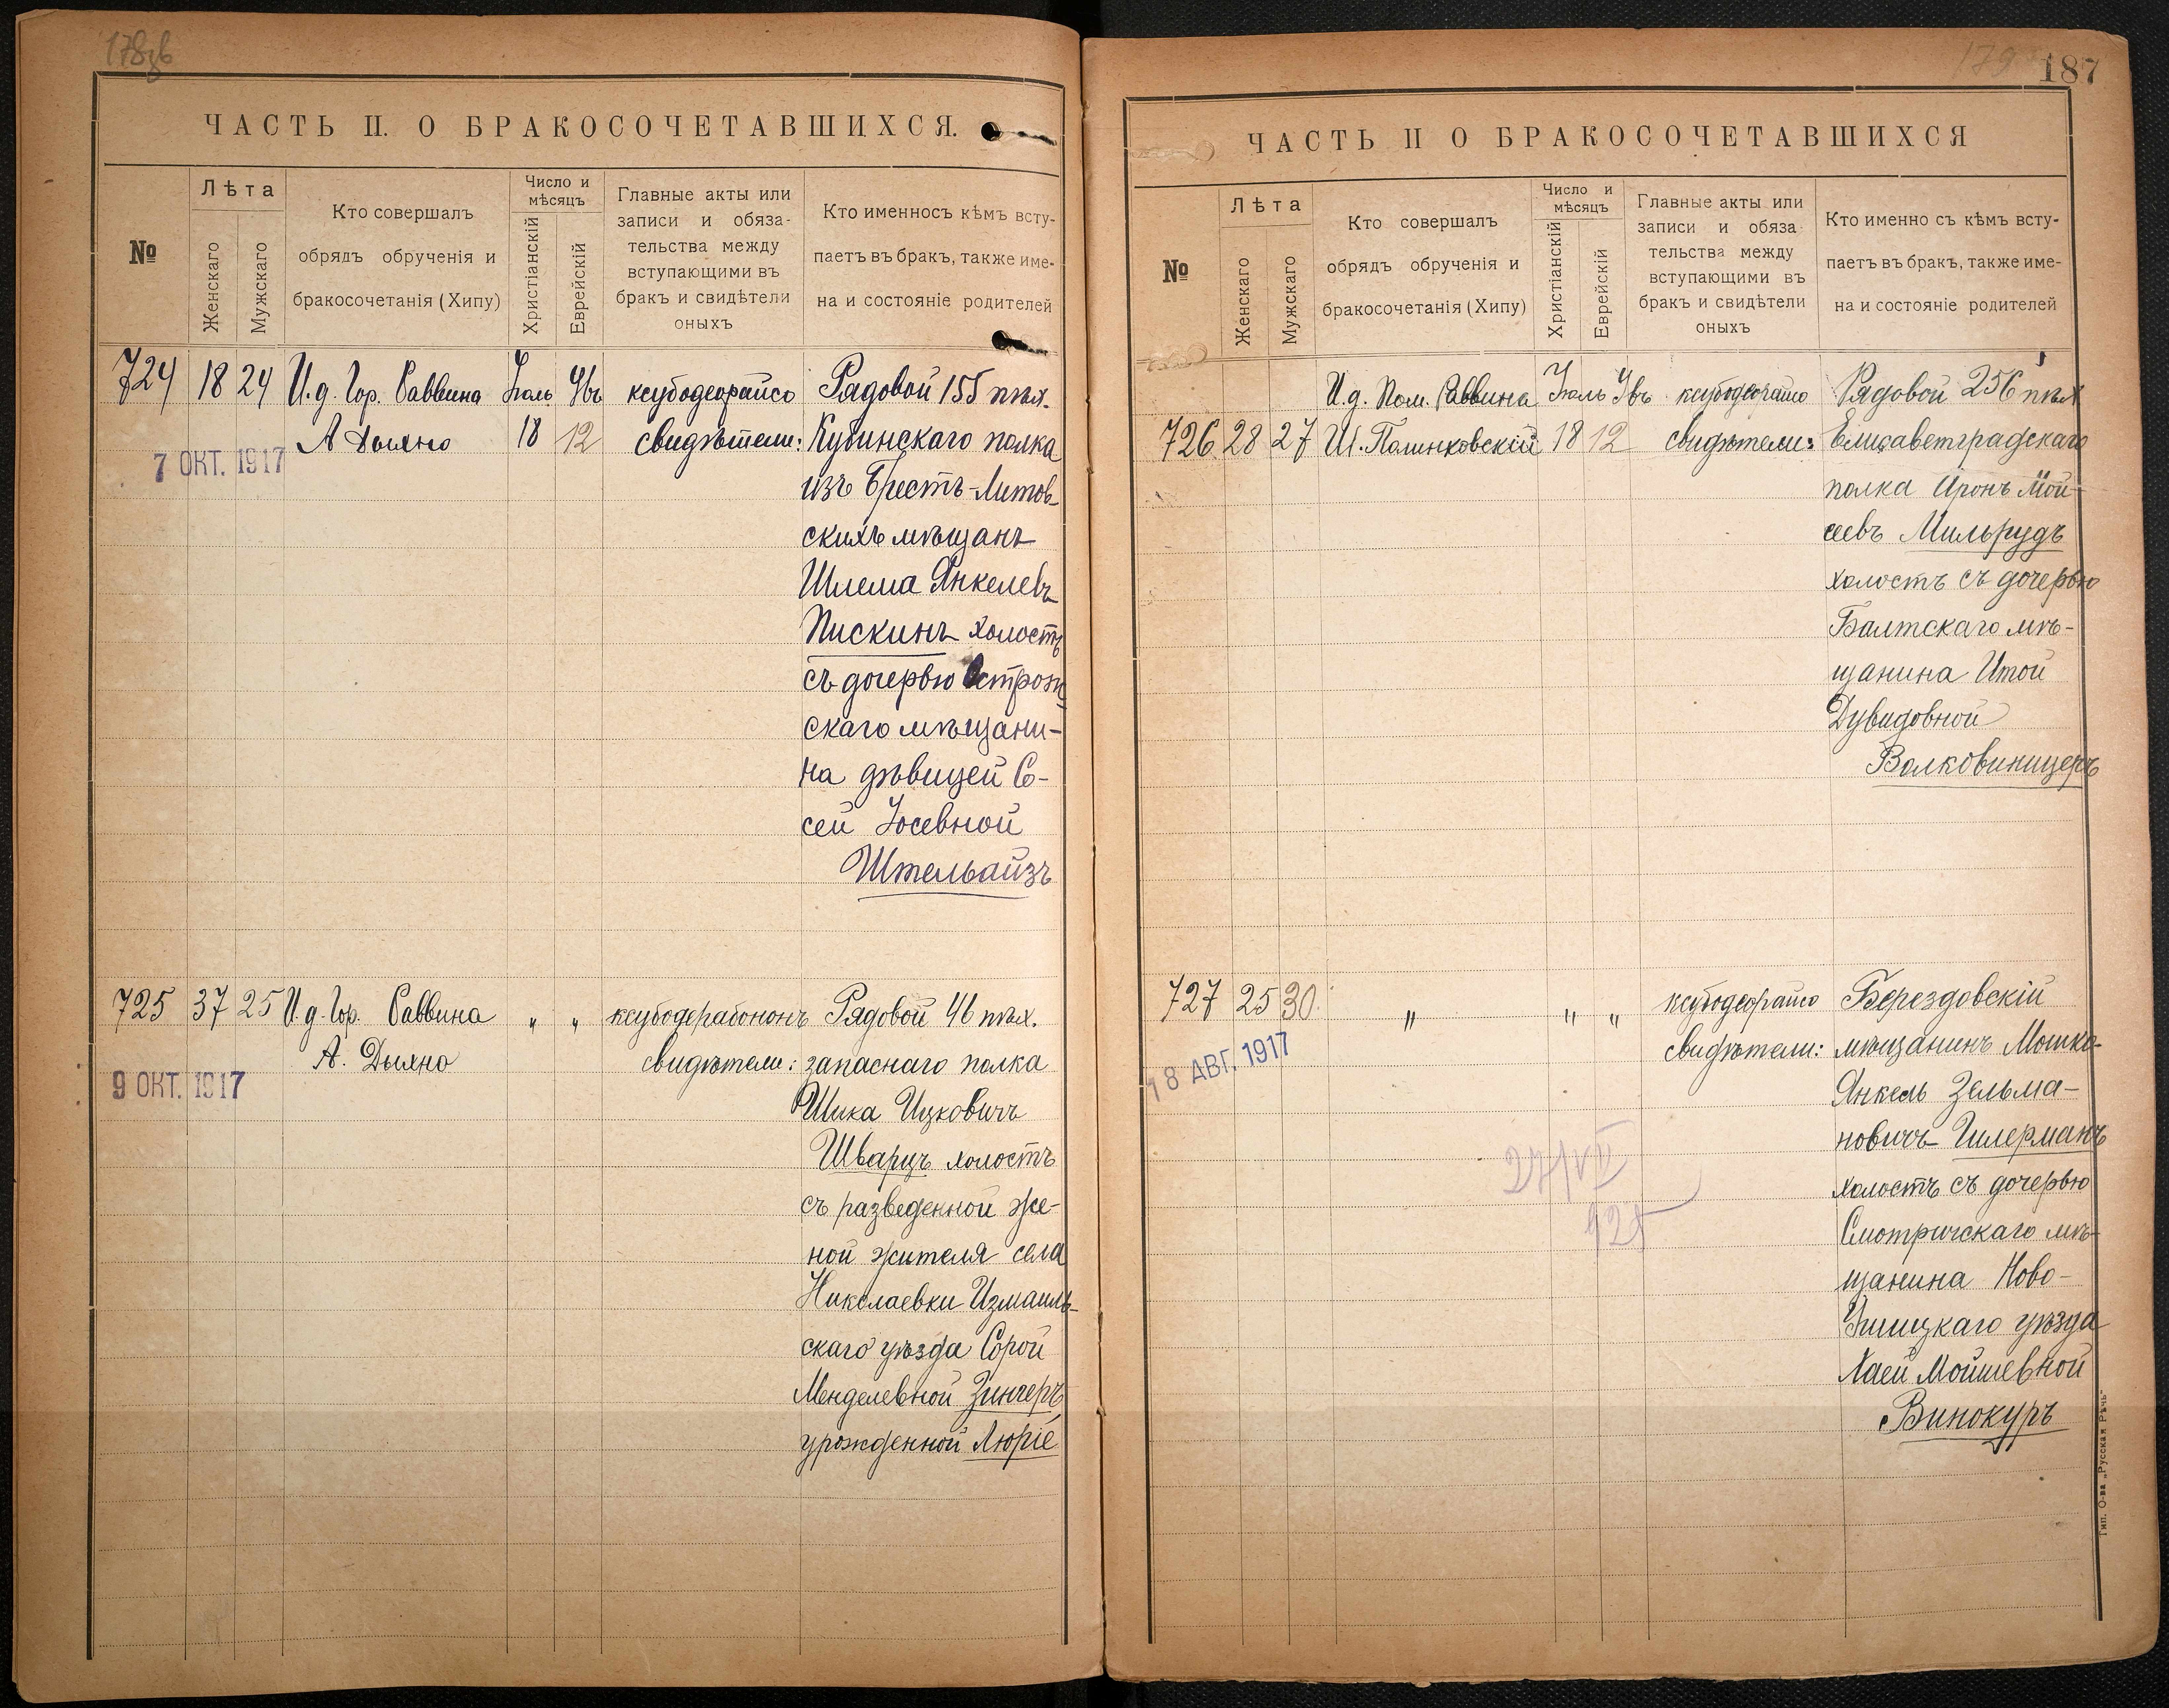 178зв
ЧАСТЬ II. О БРАКОСОЧЕТАВШИХСЯ.
№
Лѣта
Женскаго
Мужскаго
Кто совершалъ
обрядъ обрученія и
бракосочетанія (Хипу)
Число и
мѣсяцъ
Христіанскій
Еврейскій
Главные акты или
записи и обяза-
тельства между
вступающими въ
бракъ и свидѣтели
оныхъ
Кто именносъ кѣмъ всту-
паетъ въ бракъ, также име-
на и состояніе родителей
724 18 24 И.д. Гор. Раввина Іюль Увъ ксубодеорайсо Рядовой 155 пѣх.
А Дыхно 18 12 свидѣтели: Кубинскаго полка
7 ОКТ. 1917
изъ Брестъ-Литов-
скихъ мѣщанъ
Шлема Янкелевъ
Пискинъ холостъ
съ дочерью Острож-
скаго мѣщани-
на дѣвицей Со-
сей Іосевной
Штельайзъ
725 37 25 И.д. Гор. Раввина " " ксубодерабононъ Рядовой 46 пѣх.
А. Дыхно свидѣтели: запаснаго полка
9 ОКТ. 1917
Шика Ицковичъ
Шварцъ холостъ
съ разведенной же-
ной жителя села
Николаевки Измаиль-
скаго уѣзда Сорой
Менделевной Зингеръ
урожденной Люріе
179 187
ЧАСТЬ II О БРАКОСОЧЕТАВШИХСЯ
№
Лѣта
Женскаго
Мужскаго
Кто совершалъ
обрядъ обрученія и
бракосочетанія (Хипу)
Число и
мѣсяцъ
Христіанскій
Еврейскій
Главные акты или
записи и обяза
тельства между
вступающими въ
бракъ и свидѣтели
оныхъ
Кто именно съ кѣмъ всту-
паетъ въ бракъ, также име-
на и состояніе родителей
И.д. Пом. Раввина Іюль Увъ ксубодеорайсо Рядовой 256 пѣх
726 28 27 Ш. Полинковскій 18 12 свидѣтели: Елисаветградскаго
полка Аронъ Мой-
сеевъ Мильрудъ
холостъ съ дочерью
Балтскаго мѣ-
щанина Итой
Дувидовной
Волковиницеръ
727 25 30 " " " ксубодеорайсо Берездовскій
свидѣтели: мѣщанинъ Мошко-
18 АВГ. 1917
Янкель Зельма-
новичъ Гилерманъ
холостъ съ дочерью
Смотричскаго мѣ-
щанина Ново-
Ушицкаго уѣзда
Хаей Мойшевной
Винокуръ
27/VII
925
Тип. О-ва „Русская Рѣчь"